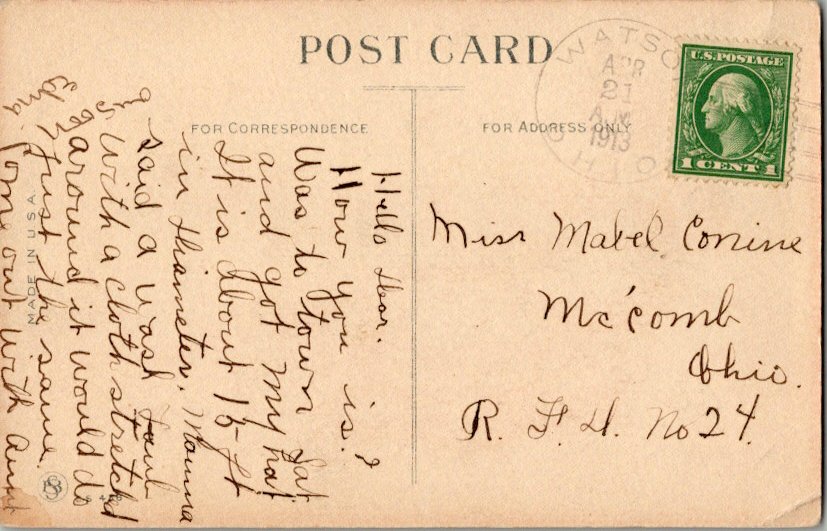 POST CARD
FOR CORRESPONDENCE
FOR ADDRESS ONLY
WATSO
APR
21
A.M.
1913
OHIO
U.S. POSTAGE
1 CENT 1
Miss Mabel Conine
Mc'Comb
Ohio.
R. F. D. No 24.
Hello Hear.
How you is?
Was to town Sat
and got my hat
It is about 15 ft
in diameter. Mamma
said a wash
with a cloth stretched
around it would do
just the same.
Come out with aunt
Edna
MADE IN U.S.A.